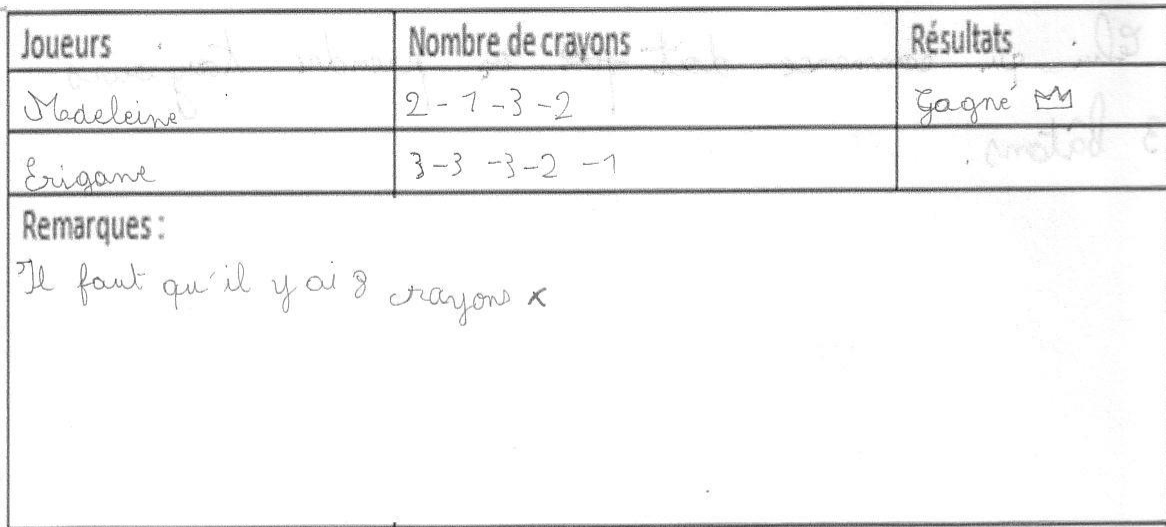 Joueurs Nombre de crayons Résultats
Madeleine 2 - 1 - 3 - 2 Gagné
Erigane 3 - 3 - 3 - 2 - 1
Remarques :
Il faut qu'il y ai 8 crayons x